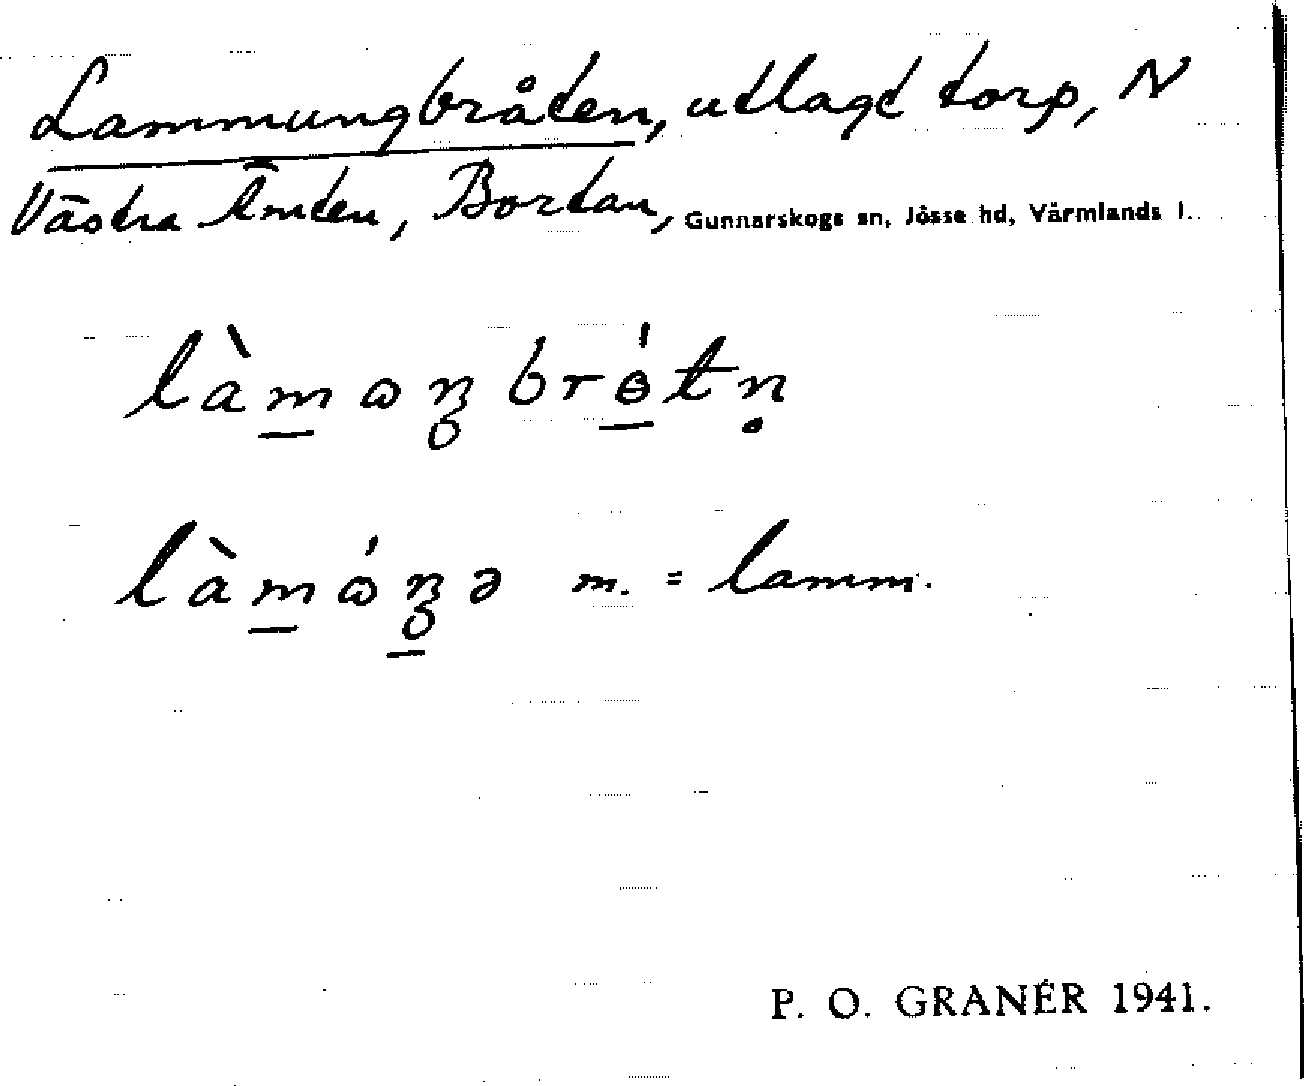 Lammungbråten, utlagt torp, N
Västra Ämten, Bortan, Gunnarskogs sn, Jösse hd, Värmlands l.
làmɷŋbrɵ́tn̥
làmɷ́ŋə m. = lamm.
P. O. GRANÉR 1941.